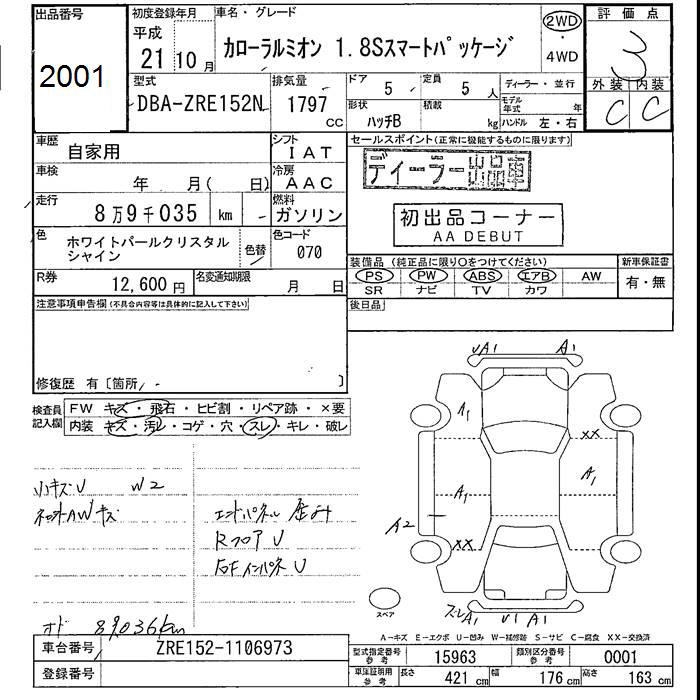 出品番号
2001
初度登録年月
平成
21 10月
車名・グレード
カローラルミオン 1.8Sスマートパッケージ
2WD
・
4WD
評価点
3
外装 内装
C C
型式
DBA-ZRE152N
排気量
1797
CC
ドア
5
定員
5 人
形状
ハッチB
積載
kg
ディーラー・並行
モデル年式 年
ハンドル 左・右
車歴
自家用
シフト
IAT
車検
年 月( 日)
冷房
AAC
走行
8万9千035 km
燃料
ガソリン
色
ホワイトパールクリスタル
シャイン
色替
色コード
070
R券
12,600円
名変通知期限
月 日
セールスポイント(正常に機能するものに限ります)
ディーラー出品車
初出品コーナー
AA DEBUT
装備品(純正品に限り○をつけてください)
新車保証書
PS PW ABS エアB AW
SR ナビ TV カワ
有・無
後日品
注意事項申告欄(不具合内容等は具体的に記入して下さい)
修復歴 有〔箇所 〕
検査員
記入欄
FW キズ・飛石・ヒビ割・リペア跡・×要
内装 キズ・汚レ・コゲ・穴・スレ・キレ・破レ
小キズU W2
AWキズ
エンドパネル 歪み
Rフロア U
右Fインパネ U
オド 89036km
UA1 A1
A1
XX
A1
A1
A2
XX
スレA1 U1 A1
スペア
A-キズ E-エクボ U-凹み W-補修跡 S-サビ C-腐食 XX-交換済
車台番号
ZRE152-1106973
登録番号
型式指定番号
参考
15963
類別区分番号
参考
0001
車庫証明用
参考
長さ 421cm
幅 176cm
高さ 163cm